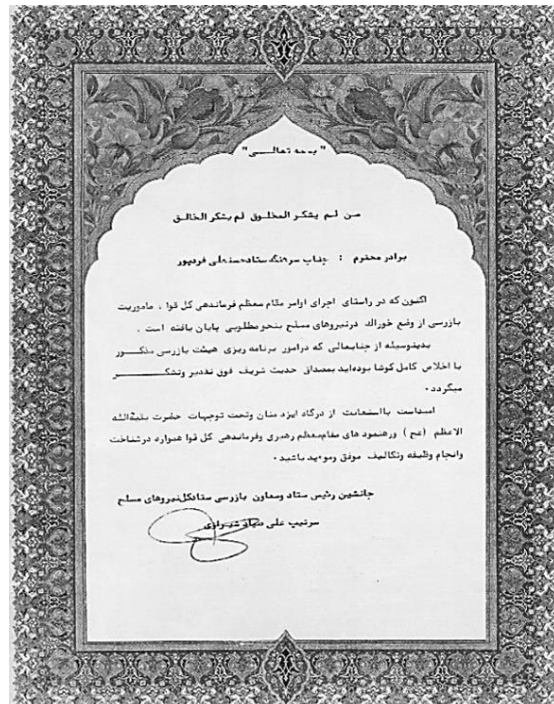 "بسمه تعالـــــی"
من لـم یشکـر المخلـوق لم یشکر الخالـق
برادر محترم : جناب سرهنگ ستاد حسنعلی فردپور
اکنون که در راستای اجرای اوامر مقام معظم فرماندهی کل قوا ، ماموریت
بازرسی از وضع خوراك درنیروهای مسلح بنحو مطلوبی پایان یافته است .
بدینوسیله از جنابعالی که درامور برنامه ریزی هیئت بازرسی مذکـــور
با اخلاص کامل کوشا بوده‌اید بمصداق حدیث شریف فوق تقدیر وتشکـــــــر
میگردد .
امیداست بااستعانت از درگاه ایزد منان وتحت توجهات حضرت بقیةالله
الاعظم (عج) ورهنمود های مقام‌معظم رهبری وفرماندهی کل قوا همواره درشناخت
وانجام وظیفه وتکالیف موفق وموءید باشید .
جانشین رئیس ستاد ومعاون بازرسی ستادکل‌نیروهای مسلح
سرتیپ علی صیاد شیـرازی